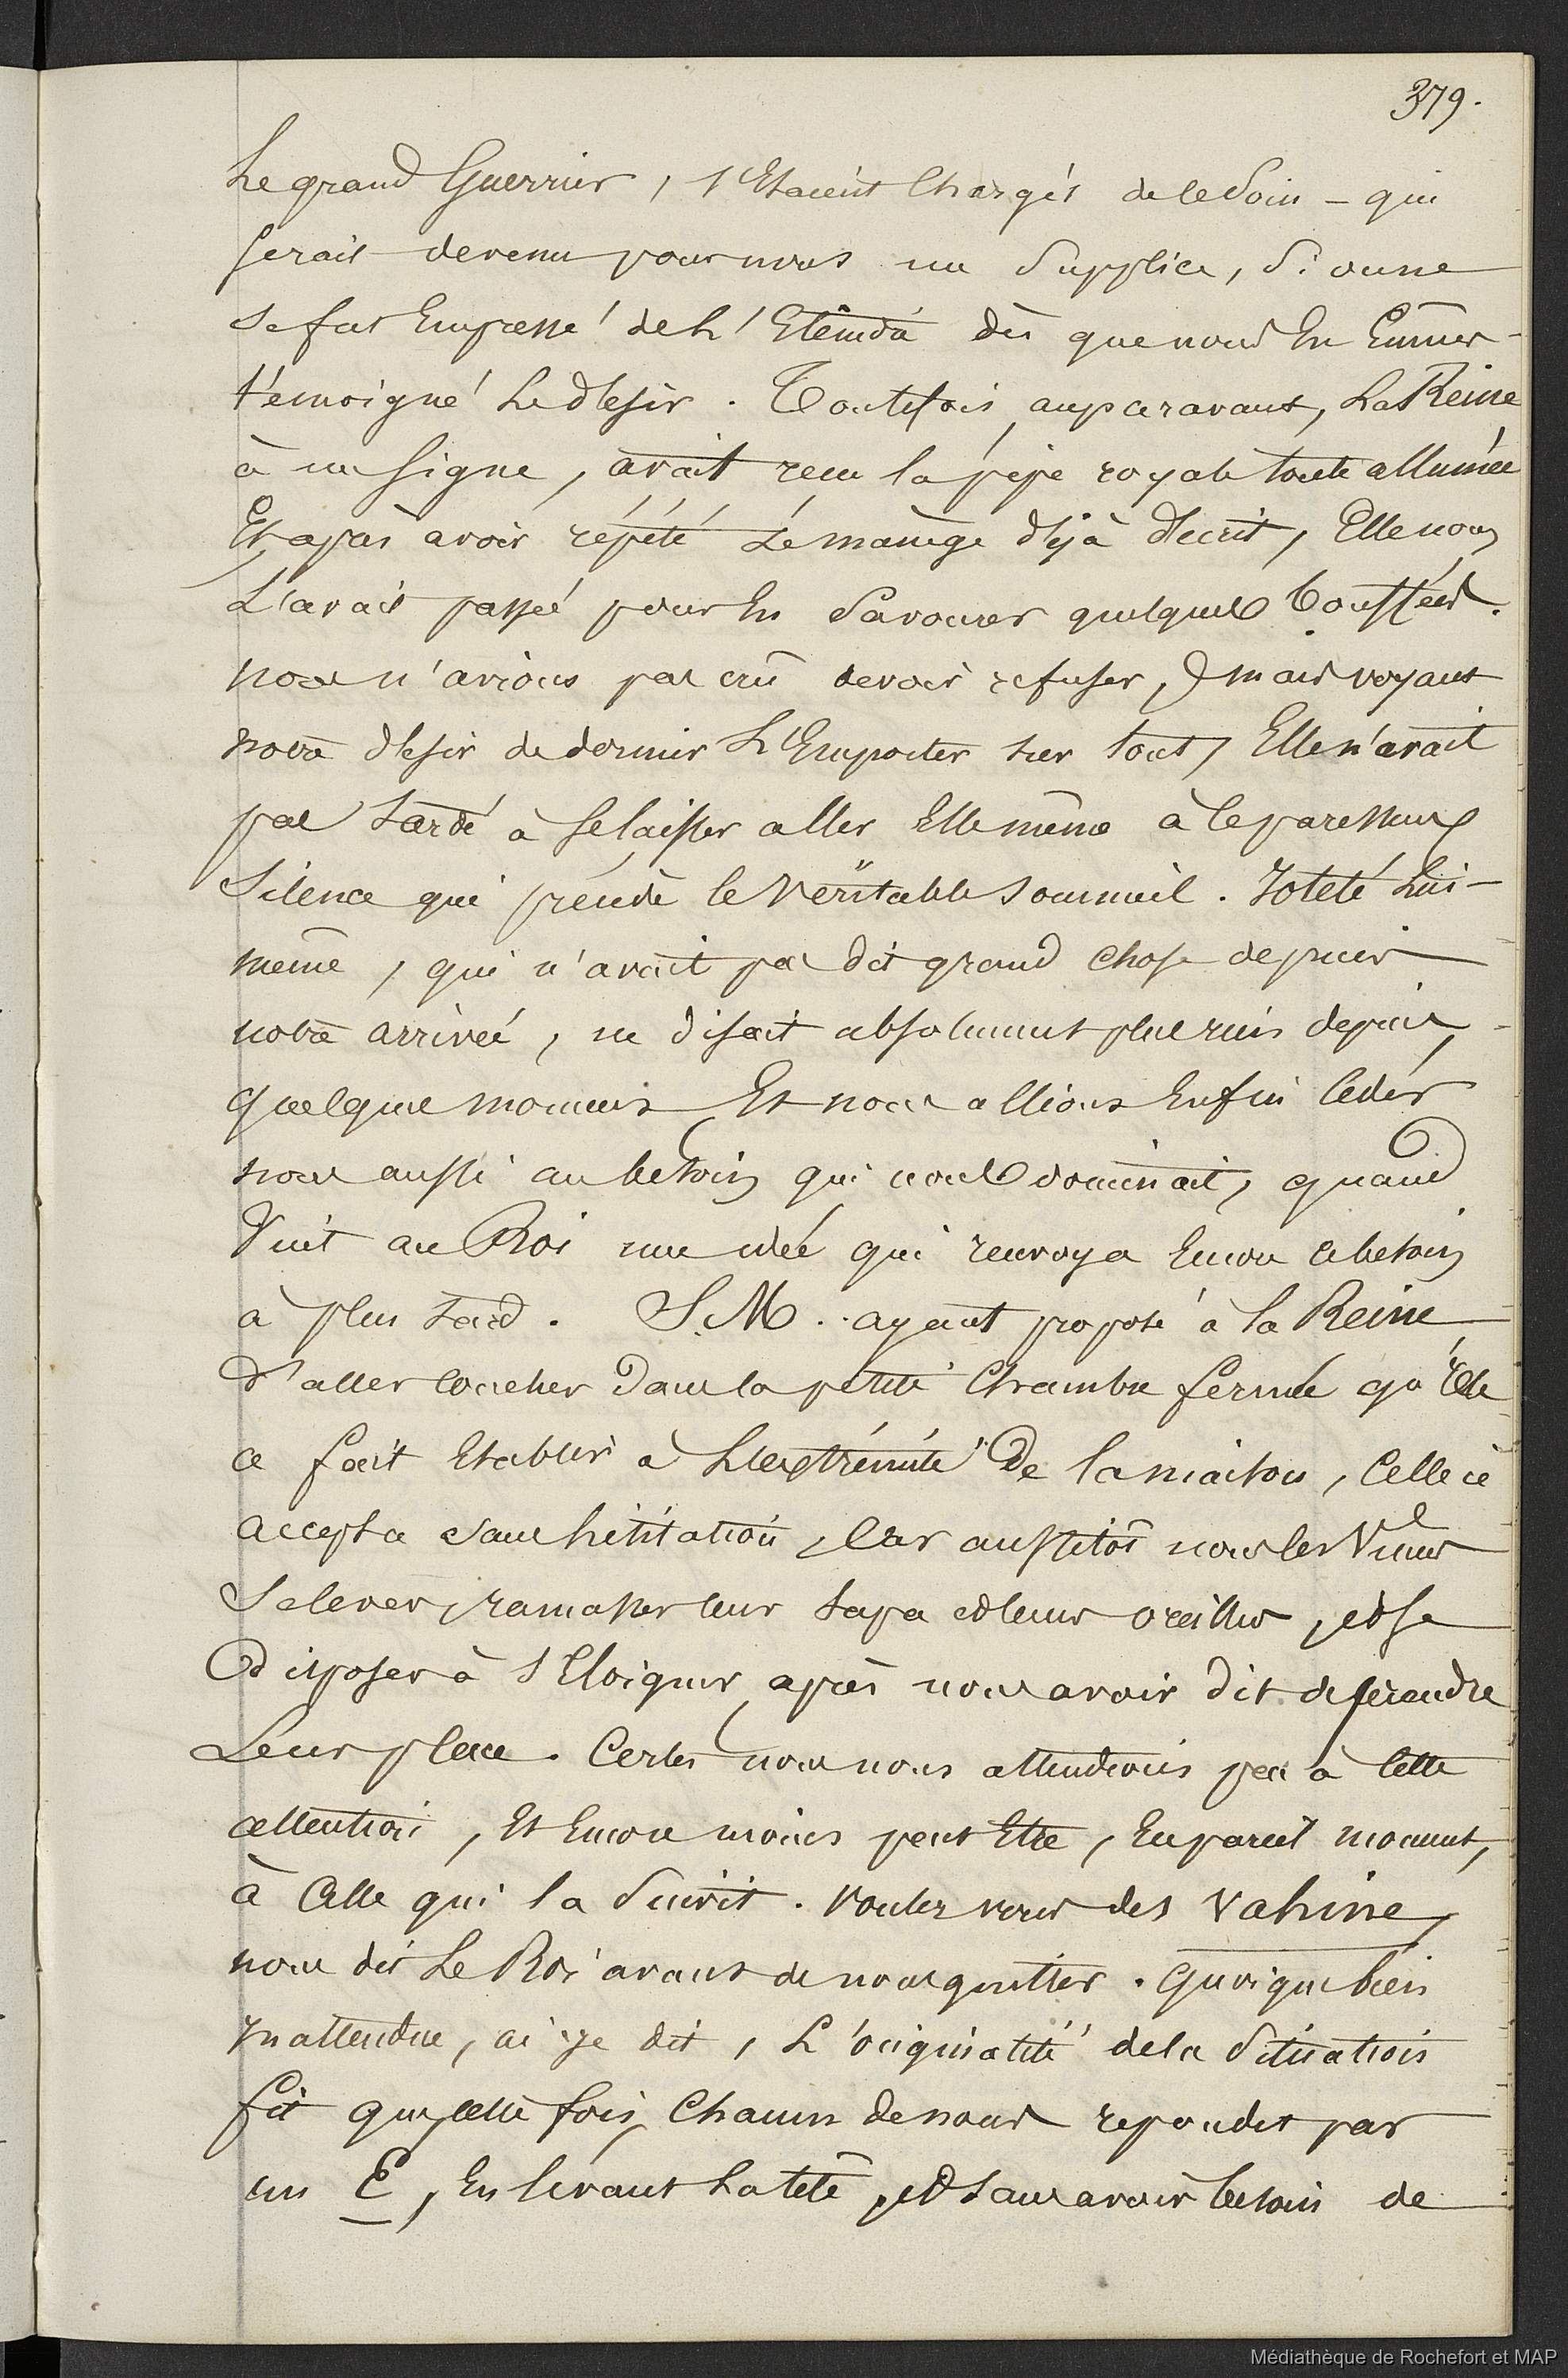 379.
Le grand Guerrier, s'Etaient Chargés de ce Soin – qui
serait devenu pour nous un Supplice, Si on ne
se fut Empressé de l'Eteindre dès que nous En Eûmes
témoigné Le désir. Toutefois, auparavant, La Reine
à un signe, avait reçu la pipe royale toute allumée
Et après avoir répété Le manège déjà décrit, Elle nous
L'avait passée pour En Savourer quelques Bouffées.
nous n'avions pas crû devoir refuser, mais voyant
notre désir de dormir L'Emporter sur tout, Elle n'avait
pas tardé à se laisser aller Elle même à ce paresseux
Silence qui précède le véritable sommeil. Ioteté Lui-
même, qui n'avait pas dit grand chose depuis
notre arrivée, ne disait absolument plus rien depuis
quelques momens Et nous allions Enfin Céder
nous aussi au besoin qui nous dominait, quand
Vint au Roi une idée qui renvoya Encore ce besoin
à plus tard. S. M. ayant proposé à la Reine
d'aller coucher dans la petite Chambre fermée qu'Elle
a fait Etablir à L'extrémité De la maison, Celle ci
accepta sans hésitation, Car aussitôt nous les Vîmes
Se lever, ramasser leur tapa et leurs oreillers, et se
Disposer à s'Eloigner, après nous avoir dit de prendre
Leur place. Certes nous nous attendions peu à Cette
attention, Et Encore moins peut Etre, En pareil moment,
à Celle qui la Suivit. Voulez vous des Vahine,
nous dit Le Roi avant de nous quitter. Quoique bien
Inattendue, ai-je dit, L'originalité de la Situation
fit que, cette fois, Chacun de nous repondit par
un E, En levant La tête, et sans avoir besoin de
Médiathèque de Rochefort et MAP